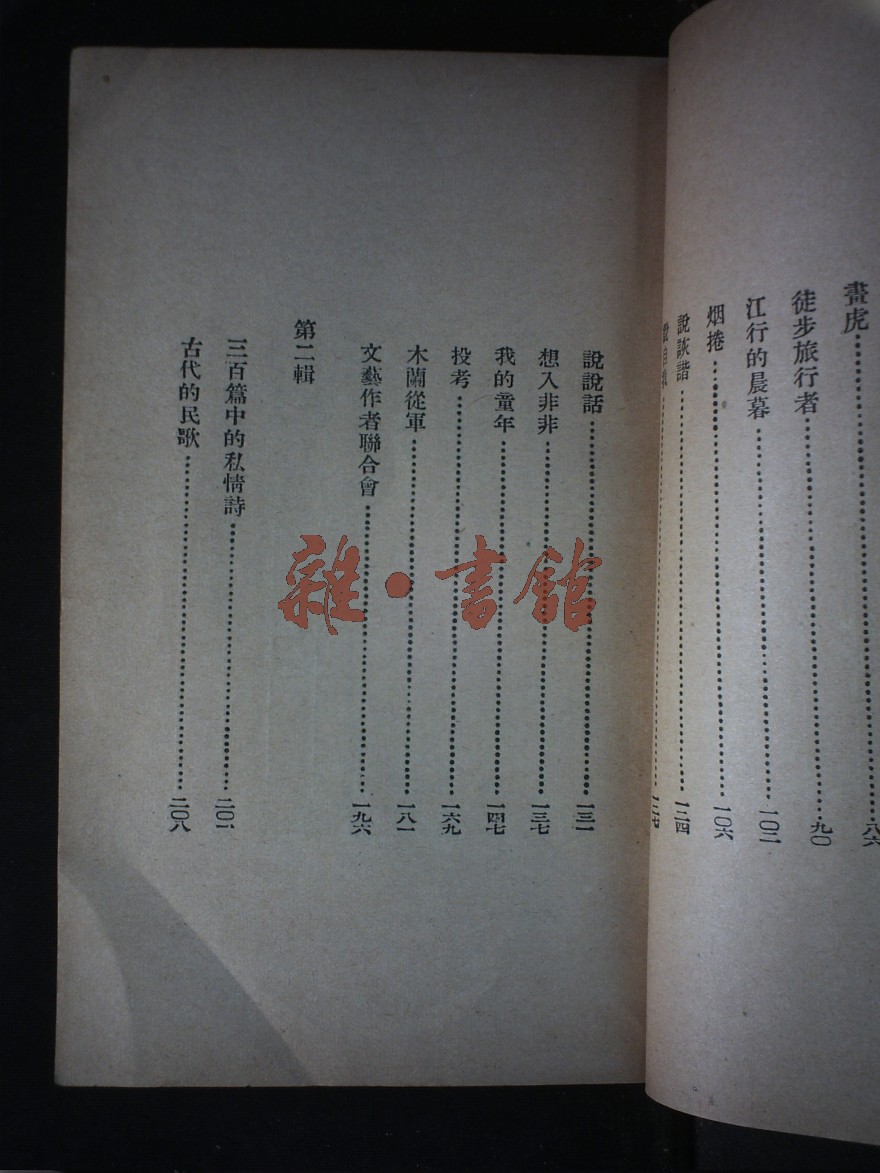 畫虎……八六
徒步旅行者……九〇
江行的晨暮……一〇二
烟捲……一〇六
說詼諧……一二四
說自我……一二七
說說話……一三一
想入非非……一三七
我的童年……一四七
投考……一六九
木蘭從軍……一八一
文藝作者聯合會……一九六
第二輯
三百篇中的私情詩……二〇一
古代的民歌……二〇八
雜·書館